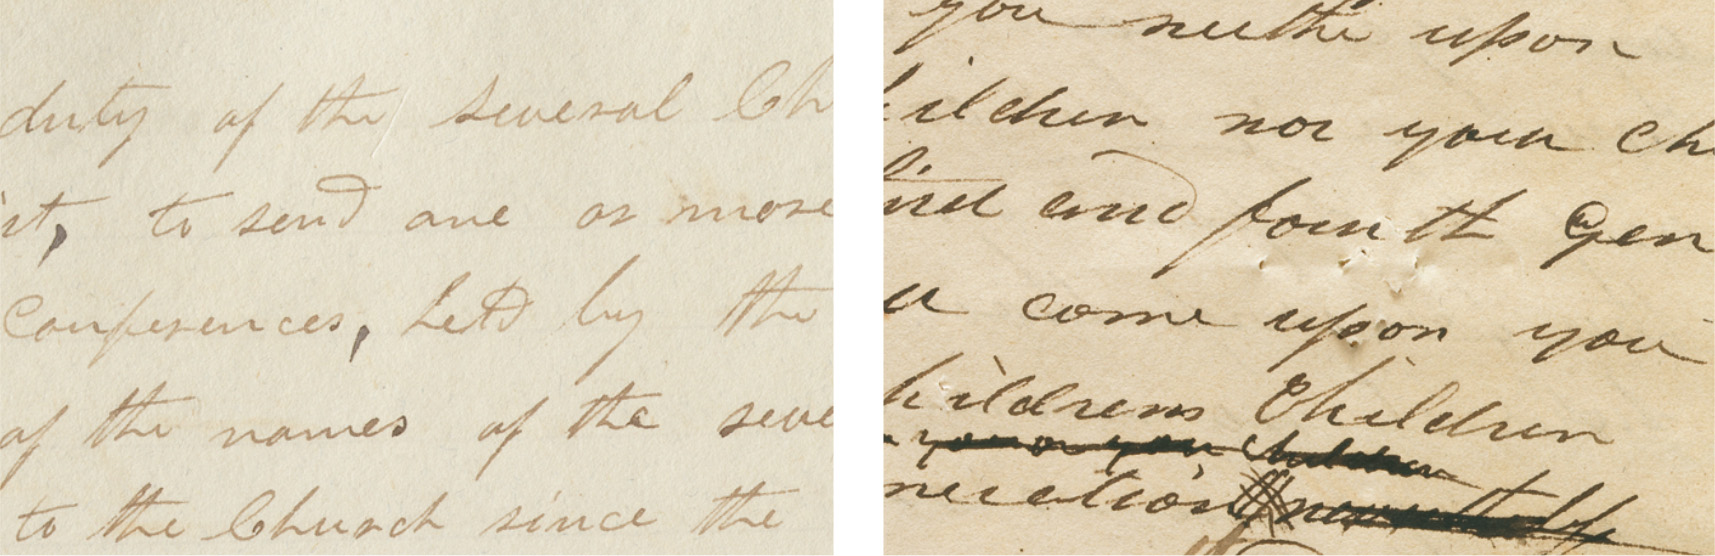 duty of the several Ch
ist, to send one or more
Conferences, held by the
of the names of the seve
to the Church since the
you neithe upon
hildren nor your chi
hird and fourth Gen
come upon you
hildrens Children
you or your Children
neration